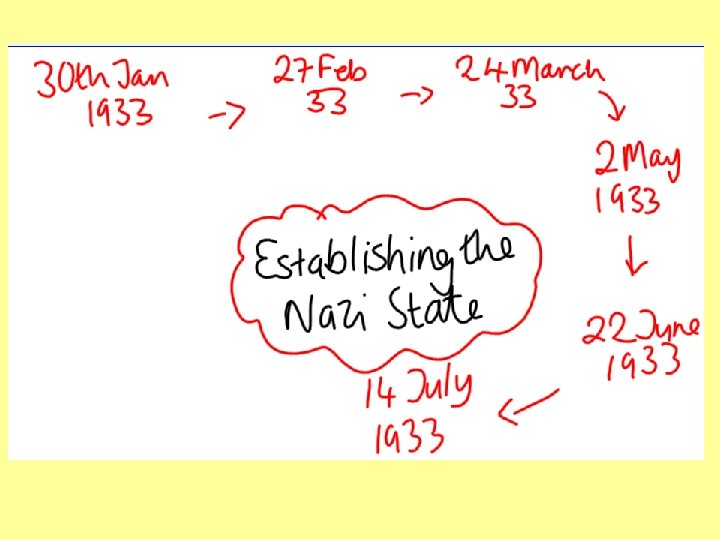 30th Jan
1933
27 Feb
33
24 March
33
2 May
1933
22 June
1933
14 July
1933
Establishing the
Nazi State